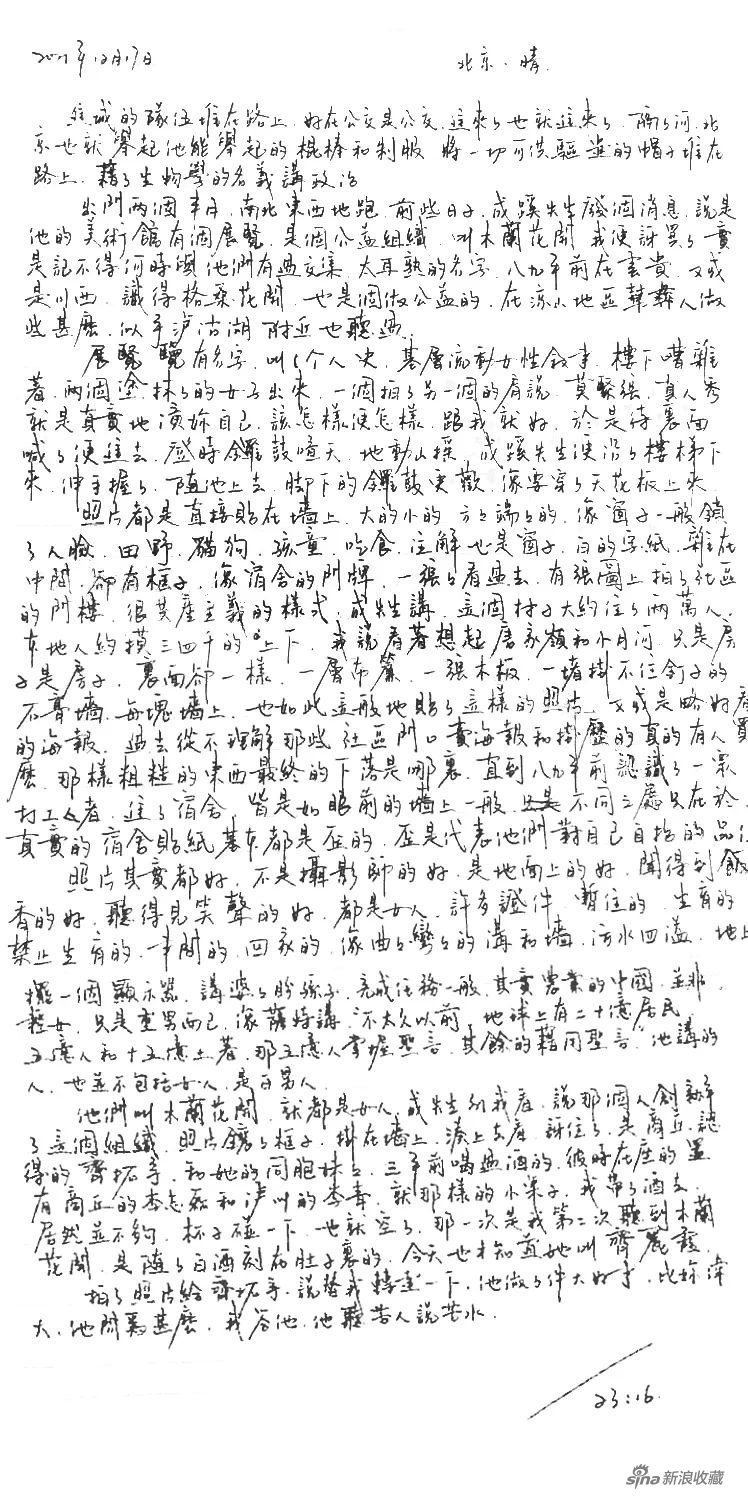 2021年12月17日
北京·晴
進城的隊伍堆在路上，好在公交是公交，進來了也就進來了，隔了河，北
京也就舉起他能舉起的棍棒和制服，將一切可供驅逐的帽子堆在
路上，藉了生物學的名義講政治
出門兩個半月，南北東西地跑，前些日子，成蹊先生發個消息，說是
他的美術館有個展覽，是個公益組織，叫木蘭花開，我便訝異了，實
是記不得何時與他們有過交集，太耳熟的名字，八九年前在雲貴，又或
是川西，識得格桑花開，也是個做公益的，在涼山地區幫彝人做
些甚麼，似乎泸沽湖附近也聽過。
展覽有名字，叫 個人史，基層流動女性敘事，樓下嘈雜
著，兩個塗抹了的女子出來，一個拍了另一個的肩說，莫緊張，真人秀
就是真實地演妳自己，該怎樣便怎樣，跟我就好，於是待裏面
喊了便進去，登時鑼鼓喧天，地動山搖，成蹊先生便沿了樓梯下
來，伸手握了，隨他上去，脚下的鑼鼓更歡，像要穿了天花板上來
照片都是直接貼在墻上，大的小的，方方端端的，像窗子一般鎖
了人臉，田野，貓狗，孩童，吃食，注解也是窗子，白的字紙，雜在
中間，卻有框子，像宿舍的門牌，一張張看過去，有張圖上拍了社區
的門樓，很共產主義的樣式，成先生講，這個村子大約住了兩萬人，
本地人約摸三四千的上下，我說看著想起唐家嶺和小月河，只是房
子是房子，裏面卻一樣，一層布簾，一張木板，一堵掛不住釘子的
石膏墻，每塊墻上，也如此這般地貼了這樣的照片，又或是略好看
的海報，過去從不理解那些社區門口賣海報和掛歷的真的有人買
麼，那樣粗糙的東西最終的下落是哪裏，直到八九年前認識了一眾
打工者，進了宿舍，皆是如眼前的墻上一般，只是不同之處只在於，
真實的宿舍貼紙基本都是歪的，歪是代表他們對自己自指的品
照片其實都好，不是攝影師的好，是地面上的好，聞得到飯
香的好，聽得見笑聲的好，都是女人，許多證件，暫住的，生育的
禁止生育的， 的，回家的，像曲曲彎彎的溝和墻，污水四溢，地上
擺一個顯示器，講婆婆盼孫子，完成任務一般，其實農業的中國，並非
輕女，只是重男而已，像薩特講，不太久以前，地球上有二十億居民，
五億人和十五億土著，那五億人掌握聖言，其餘的藉用聖言，他講的
人，也並不包括女人，是白男人
他們叫木蘭花開，就都是女人，成先生引我看，說那個人創辦
了這個組織，照片鑲了框子，掛在墻上，湊上去看，訝住了，是商丘認
得的齊 ，和她的同胞妹妹，三年前喝過酒的，彼時在座的還
有商丘的李 和泸州的李 ，就那樣的小桌子，我帶了酒去
居然並不夠，杯子碰一下，也就空了，那一次是我第二次聽到木蘭
花開，是隨了白酒刻在肚子裏的，今天也才知道她叫齊麗霞
拍了照片給齊 ，說替我轉達一下，他做了件大好事，比妳偉
大，他問為甚麼，我答他，他聽苦人說苦水
23:16
sina新浪收藏